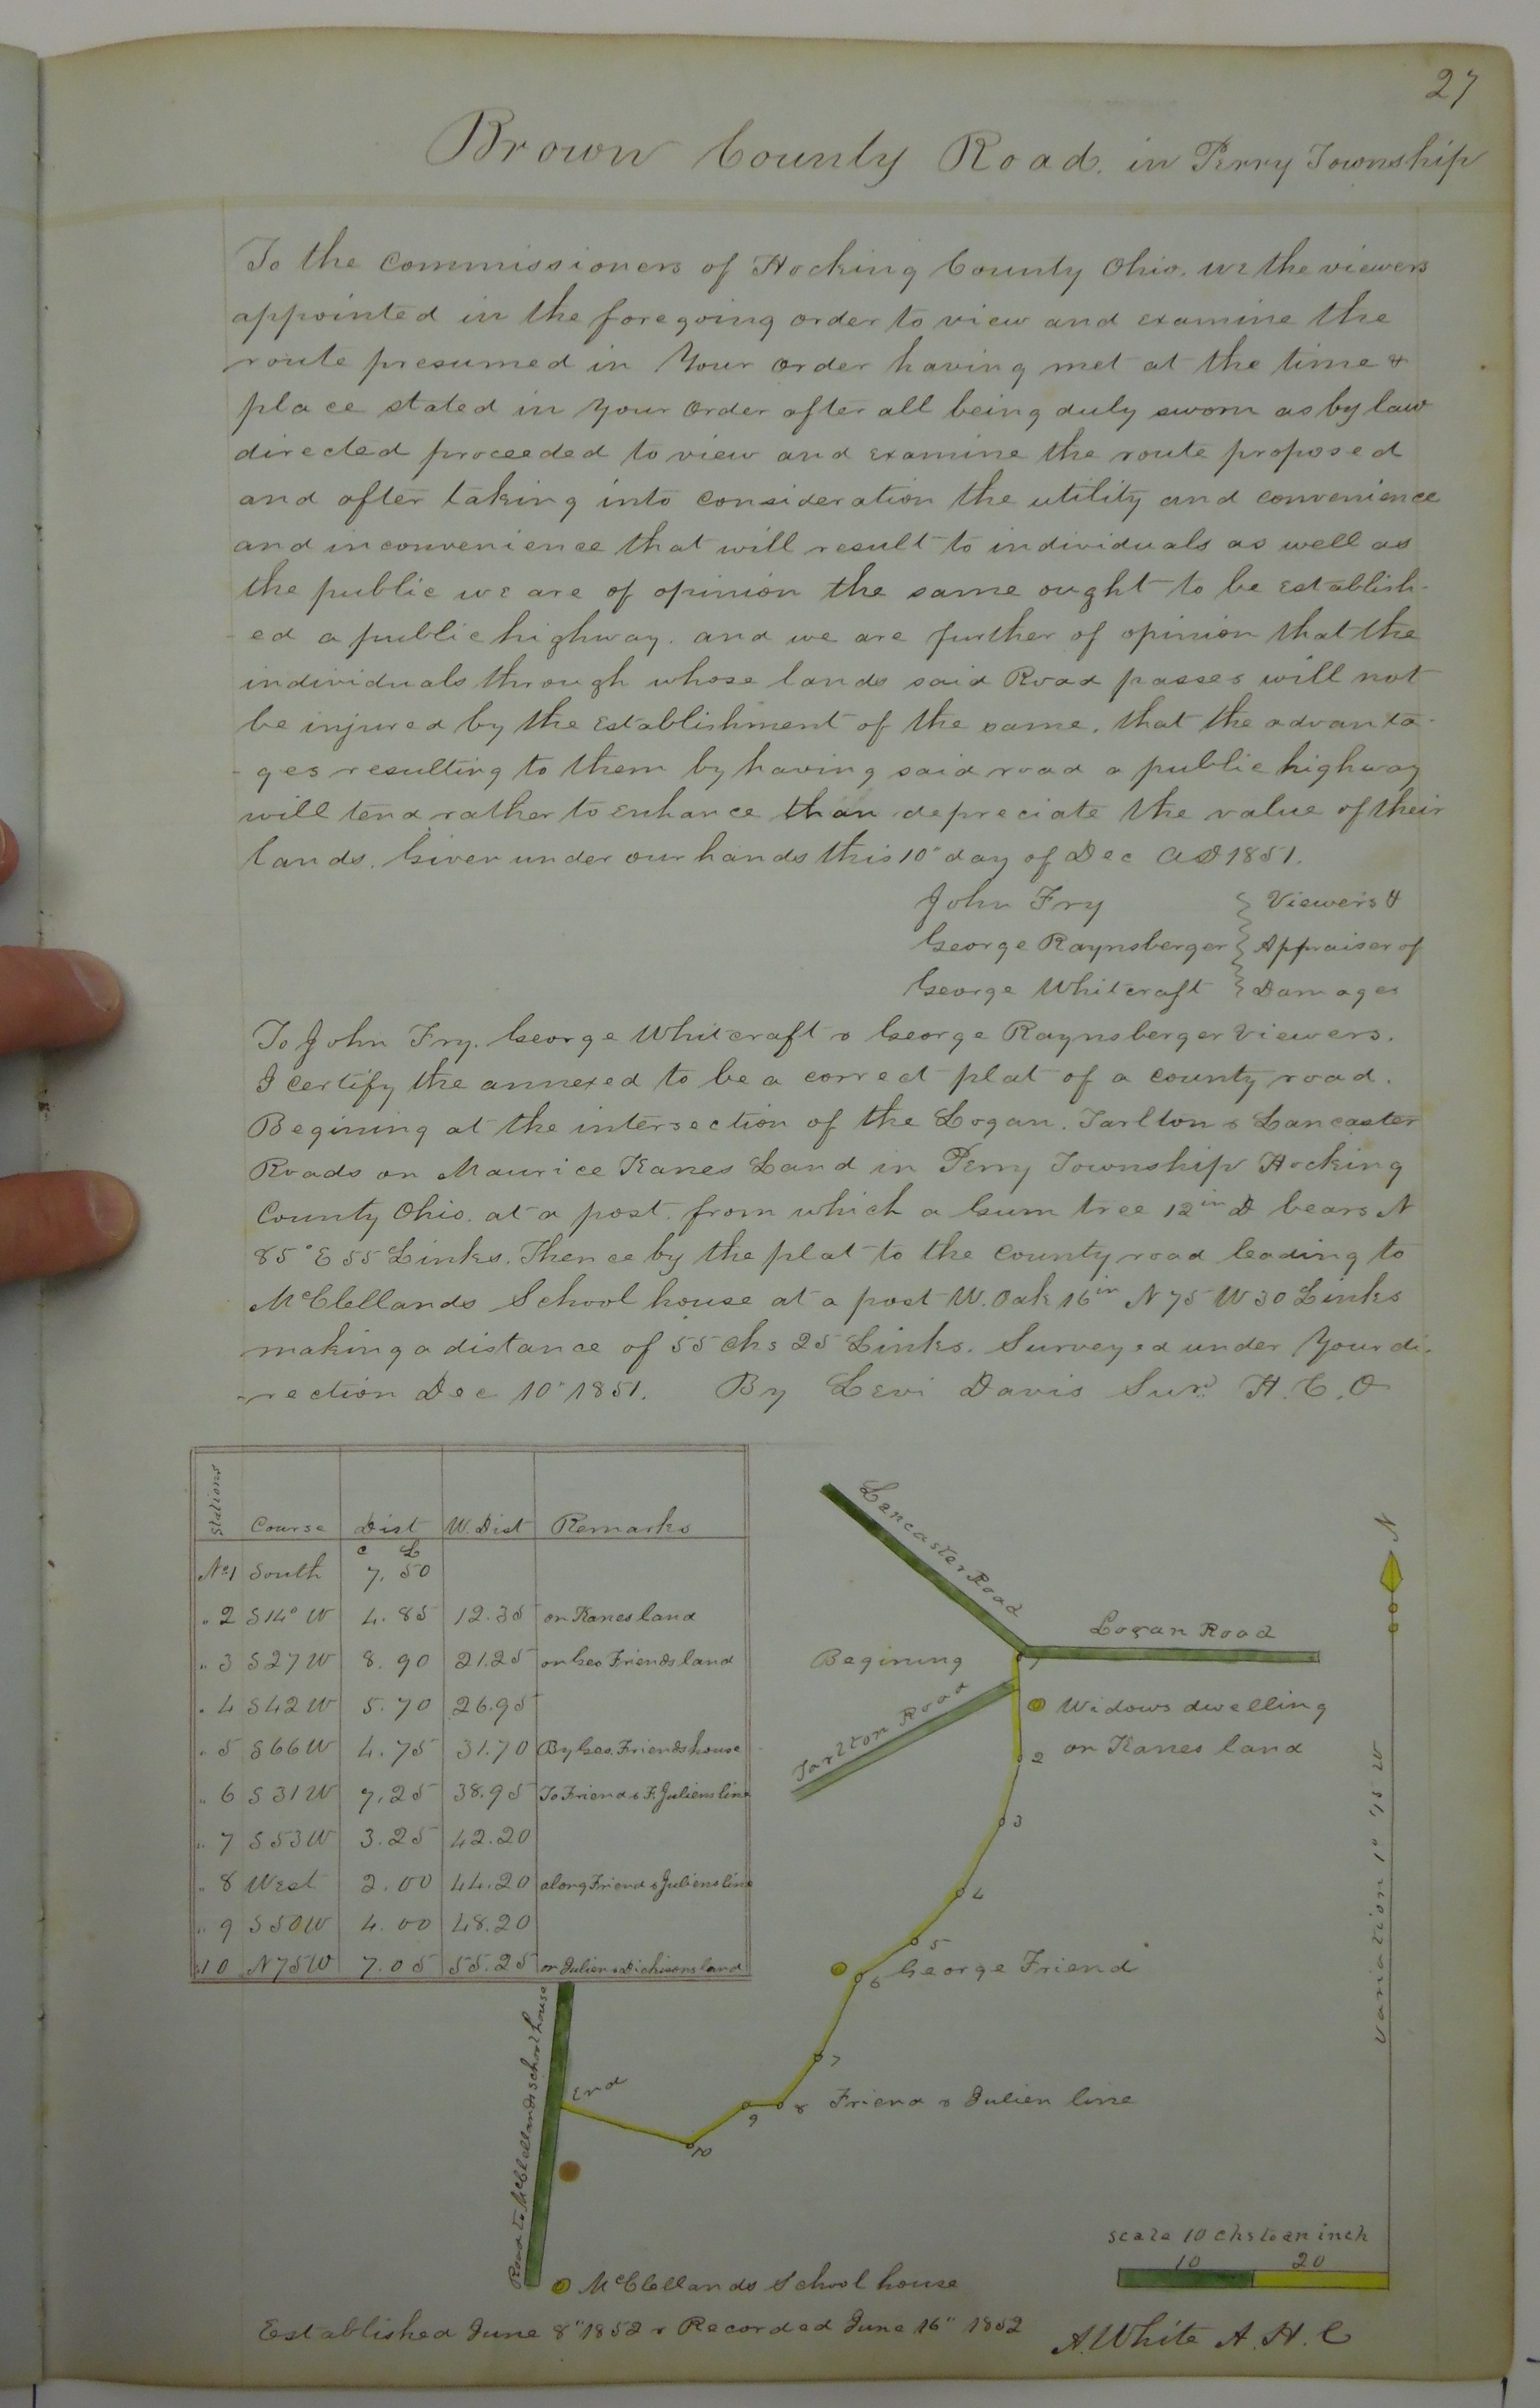 27
Brown County Road. in Perry Township
To the Commissioners of Hocking County Ohio. we the viewers
appointed in the foregoing order to view and examine the
route presumed in Your order having met at the time &
place stated in your order after all being duly sworn as by law
directed proceeded to view and examine the route proposed
and after taking into consideration the utility and convenience
and inconvenience that will result to individuals as well as
the public we are of opinion the same ought to be establish-
-ed a public highway. and we are further of opinion that the
individuals through whose lands said Road passes will not
be injured by the establishment of the same. that the advanta-
-ges resulting to them by having said road a public highway
will tend rather to enhance than depreciate the value of their
lands. Given under our hands this 10" day of Dec AD 1851.
John Fry } Viewers &
George Raynsberger } Appraiser of
George Whitcraft } Damages
To John Fry. George Whitcraft & George Raynsberger Viewers.
I certify the annexed to be a correct plat of a county road.
Begining at the intersection of the Logan. Tarlton & Lancaster
Roads on Maurice Kanes Land in Perry Township Hocking
County Ohio. at a post. from which a Gum tree 12 in D bears N
85° E 55 Links. Thence by the plat to the County road leading to
McClellands School house at a post W. Oak 16 in N 75 W 30 Links
making a distance of 55 chs 25 Links. Surveyed under Your di-
-rection Dec 10" 1851. By Levi Davis Surr. H. C. O
Stations Course Dist W. Dist Remarks
C L
No 1 South 7. 50
" 2 S 14° W 4. 85 12.35 on Kanes land
" 3 S 27 W 8. 90 21.25 on Geo Friends land
" 4 S 42 W 5. 70 26.95
" 5 S 66 W 4. 75 31.70 By Geo. Friends house
" 6 S 31 W 7. 25 38.95 To Friend & F. Juliens line
" 7 S 53 W 3. 25 42.20
" 8 West 2. 00 44.20 along Friend & Juliens line
" 9 S 50 W 4. 00 48.20
" 10 N 75 W 7. 05 55.25 on Julien & Dichisons land
Lancaster Road
N
Logan Road
Begining
1
Tarlton Road
Widows dwelling
on Kanes land
2
3
4
5
6
George Friend
7
8
Friend & Julien line
9
10
End
Road to McClellands school house
variation 1° 45 W
McClellands School house
scale 10 chs to an inch
10 20
Established June 8" 1852 & Recorded June 16" 1852
A. White A. H. C